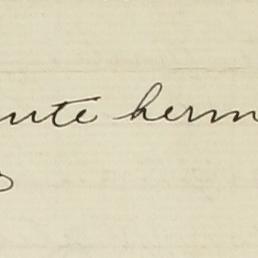 nute herm